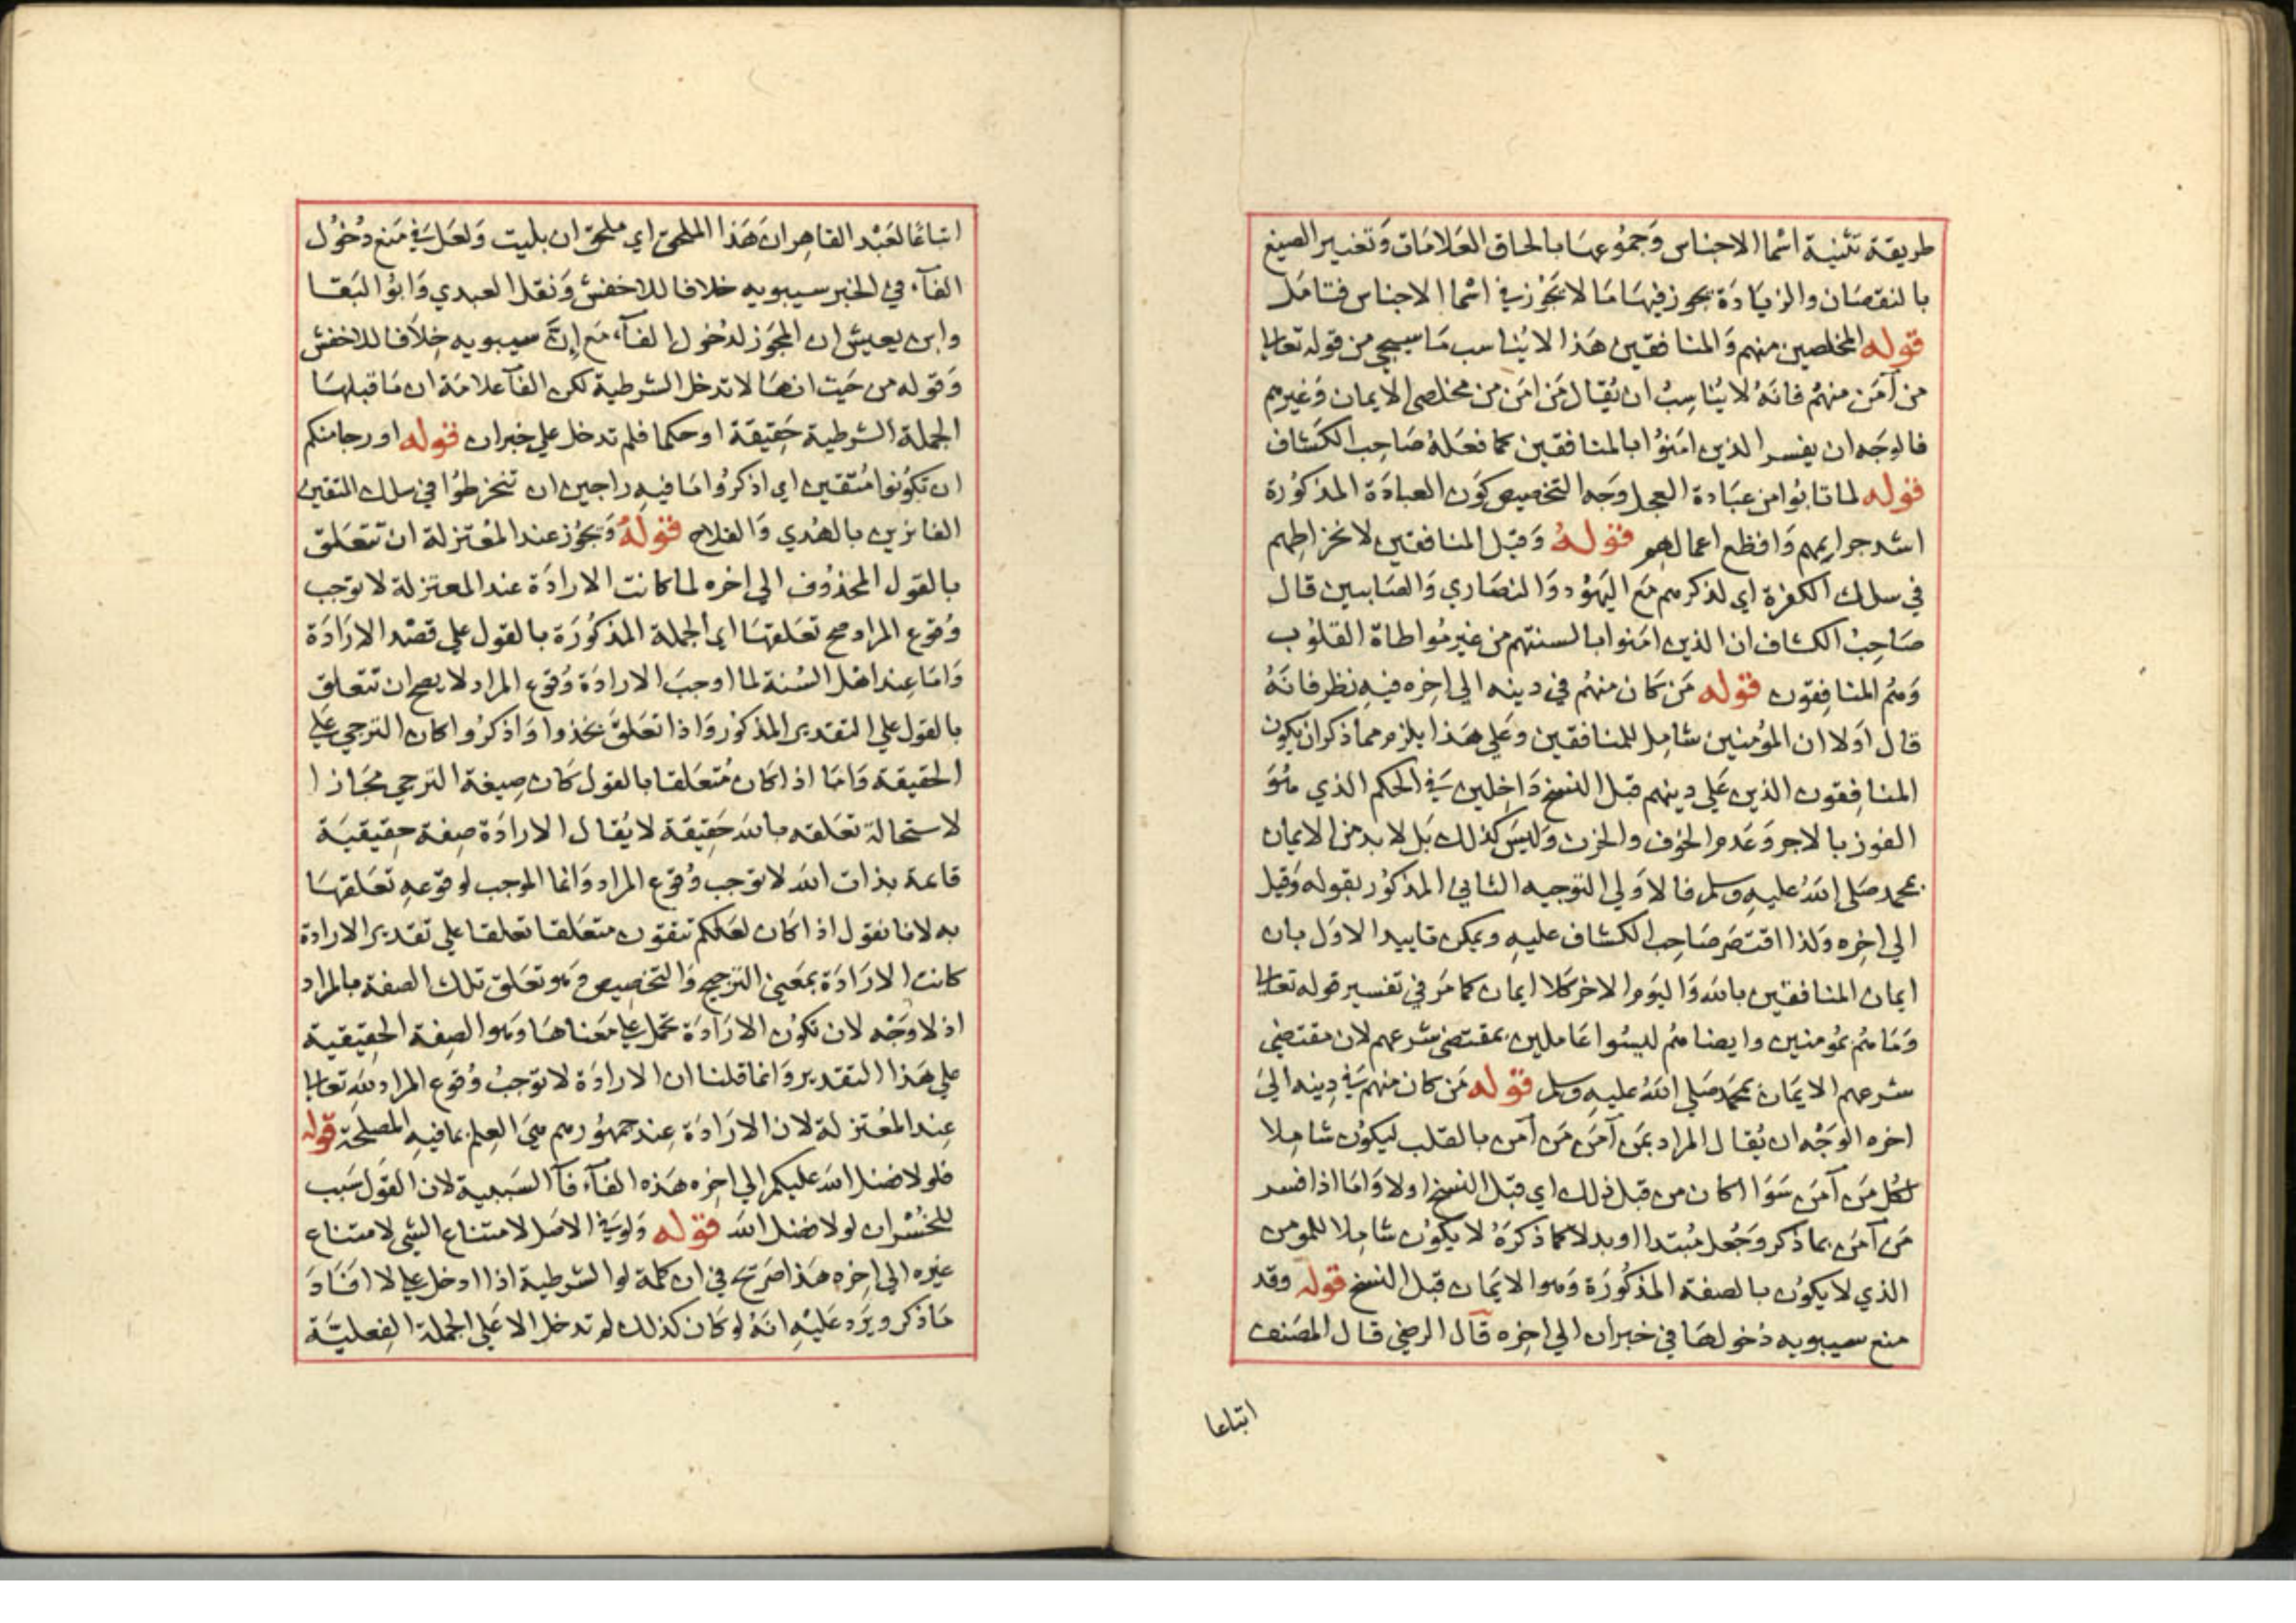 طريقة تثنية اسما الاجناس وجموعها بالحاق العلامات وتغيير الصيغ
بالنقصان والزيادة يجوز فيها ما لا يجوز في اسما الاجناس فتامل
قوله المخلصين منهم والمنافقين هذا لا يناسب ما سيجي من قوله تعالى
من آمن منهم فانه لا يناسب ان يقال من امن من مخلصي الايمان وغيرهم
فالوجه ان يفسر الذين امنوا بالمنافقين كما فعله صاحب الكشاف
قوله لما تابوا من عبادة العجل وجه التخصيص كون العبادة المذكورة
اشد جرايمهم وافظع اعمالهم قوله وقيل المنافقين لانخراطهم
في سلك الكفرة اي لذكرهم مع اليهود والنصاري والصابين قال
صاحب الكشاف ان الذين امنوا بالسنتهم من غير مواطاة القلوب
وهم المنافقون قوله من كان منهم في دينه الي اخره فيه نظر فانه
قال اولا ان المؤمنين شامل للمنافقين وعلي هذا يلزم مما ذكر ان يكون
المنافقون الذين علي دينهم قبل النسخ داخلين في الحكم الذي هو
الفوز بالاجر وعدم الخوف والحزن وليس كذلك بل لا بد من الايمان
بمحمد صلي الله عليه وسلم فالاولي التوجيه الثاني المذكور بقوله وقيل
الي اخره ولذا اقتصر صاحب الكشاف عليه ويمكن تاييد الاول بان
ايمان المنافقين بالله واليوم الاخر كلا ايمان كما مر في تفسير قوله تعالى
وما هم بمومنين وايضا هم ليسوا عاملين بمقتضي شرعهم لان مقتضي
شرعهم الايمان بمحمد صلي الله عليه وسلم قوله من كان منهم في دينه الي
اخره الوجه ان يقال المراد بمن آمن من آمن بالقلب ليكون شاملا
لكل من آمن سوا كان من قبل ذلك اي قبل النسخ اولا واما اذا فسر
من آمن بما ذكر وجعل مبتدا او بدلا كما ذكره لا يكون شاملا للمومن
الذي لا يكون بالصفة المذكورة وهو الايمان قبل النسخ قوله وقد
منع سيبويه دخولها في خبر ان الي اخره قال الرضي قال المصنف
اتباعا
اتباعا لعبد القاهر ان هذا الملحق اي ملحق ان بليت ولعل في منع دخول
الفآء في الخبر سيبويه خلافا للاخفش ونقل العبدي وابو البقا
وابن يعيش ان المجوز لدخول الفآء مع إنّ سيبويه خلافا للاخفش
وقوله من حيث انها لا تدخل الشرطية لكن الفآ علامة ان ما قبلها
الجملة الشرطية حقيقة او حكما فلم تدخل علي خبر ان قوله او رجا منكم
ان تكونوا متقين اي اذكروا ما فيه راجين ان تنخرطوا في سلك المتقين
الفائزين بالهدي والفلاح قوله ويجوز عند المعتزلة ان تتعلق
بالقول المحذوف الي اخره لما كانت الارادة عند المعتزلة لا توجب
وقوع المراد صح تعلقها اي الجملة المذكورة بالقول علي قصد الارادة
واما عند اهل السنة لما اوجب الارادة وقوع المراد لا يصح ان تتعلق
بالقول علي التقدير المذكور واذا تعلق بخذوا واذكروا كان الترجي علي
الحقيقة واما اذا كان متعلقا بالقول كان صيغة الترجي مجازا
لاستحالة تعلقه بالله حقيقة لا يقال الارادة صفة حقيقية
قائمة بذات الله لا توجب وقوع المراد وانما الموجب لوقوعه تعلقها
به لانا نقول اذا كان لعلكم تتقون متعلقا تعلقا علي تقدير الارادة
كانت الارادة بمعني الترجيح والتخصيص وهو تعلق تلك الصفة بالمراد
اذ لا وجه لان تكون الارادة تحمل علي معناها وهو الصفة الحقيقية
علي هذا التقدير وانما قلنا ان الارادة لا توجب وقوع المراد لله تعالى
عند المعتزلة لان الارادة عند جمهورهم هي العلم بما فيه المصلحة قوله
فلولا فضل الله عليكم الي اخره هذه الفآء فآ السببية لان القول سبب
للخسران لولا فضل الله قوله ولو في الاصل لامتناع الشي لامتناع
غيره الي اخره هذا صريح في ان كلمة لو الشرطية اذا ادخل علي لا افاد
ما ذكر ويرد عليه انه لو كان كذلك لم تدخل الا علي الجملة الفعلية